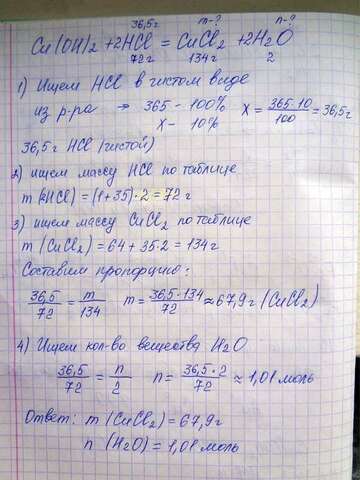 36,5г m-? n-?
Cu(OH)2 + 2HCl = CuCl2 + 2H2O
72г 134г 2
1) Ищем HCl в чистом виде
из р-ра => 365 - 100% X = 365·10/100 = 36,5г
X - 10%
36,5г HCl (чистой)
2) ищем массу HCl по таблице
m(2HCl) = (1+35)·2 = 72г
3) ищем массу CuCl2 по таблице
m(CuCl2) = 64 + 35·2 = 134г
Составим пропорцию:
36,5/72 = m/134 m = 36,5·134/72 ≈ 67,9г (CuCl2)
4) Ищем кол-во вещества H2O
36,5/72 = n/2 n = 36,5·2/72 ≈ 1,01 моль
Ответ: m(CuCl2) = 67,9г
n(H2O) = 1,01 моль